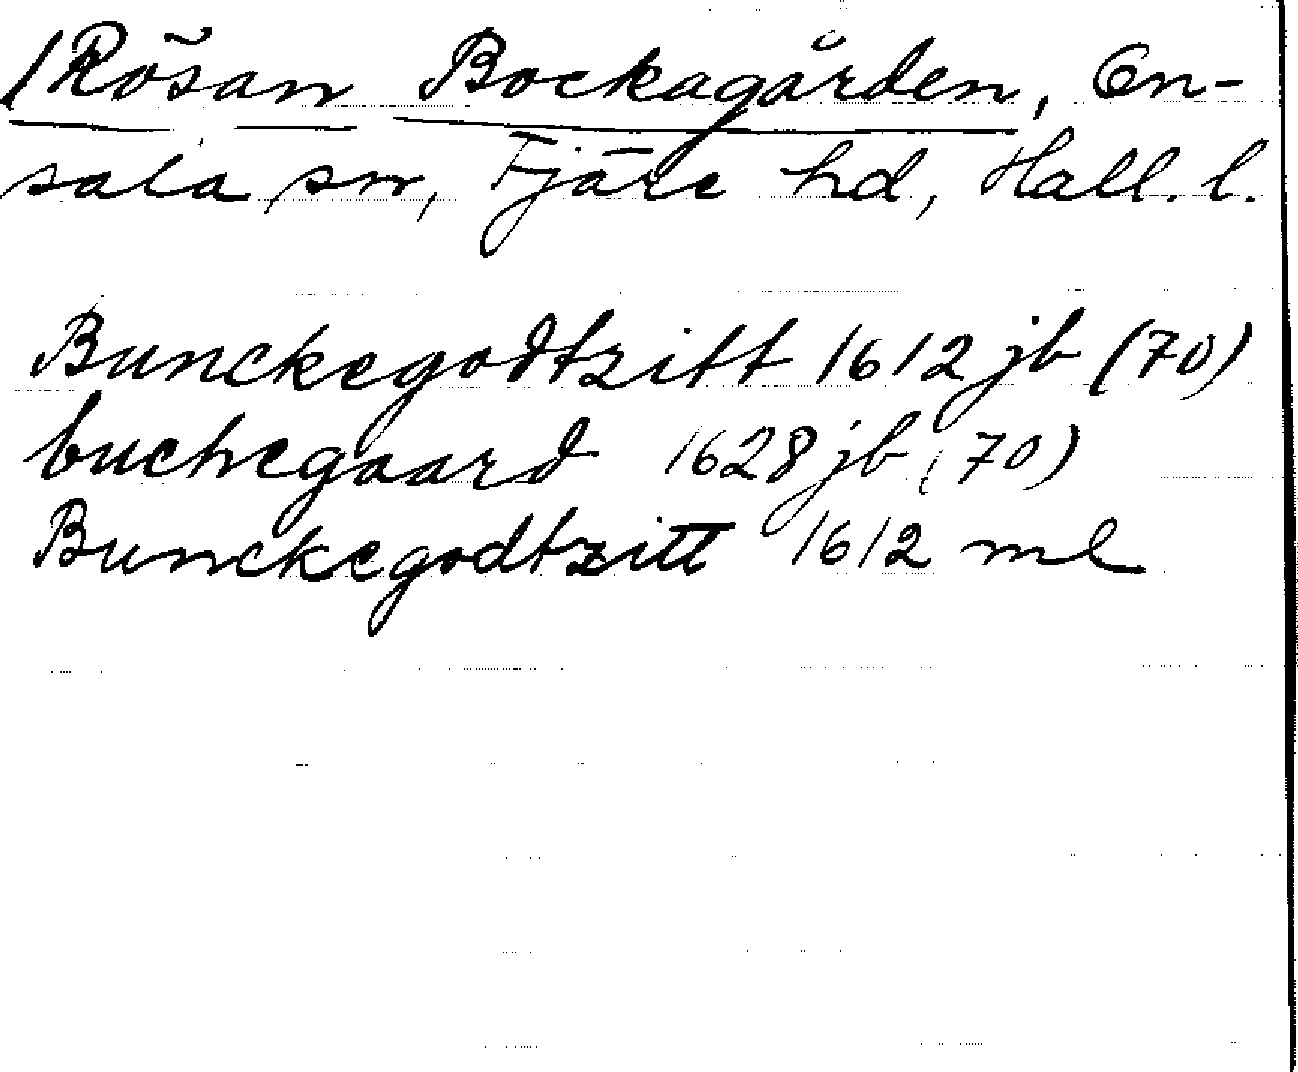 /Rösan Bockagården, On-
sala sn, Fjäre hd, Hall. l.
Bunckegodtzitt 1612 jb (70)
buchegaard 1628 jb (70)
Bunckegodtzitt 1612 ml